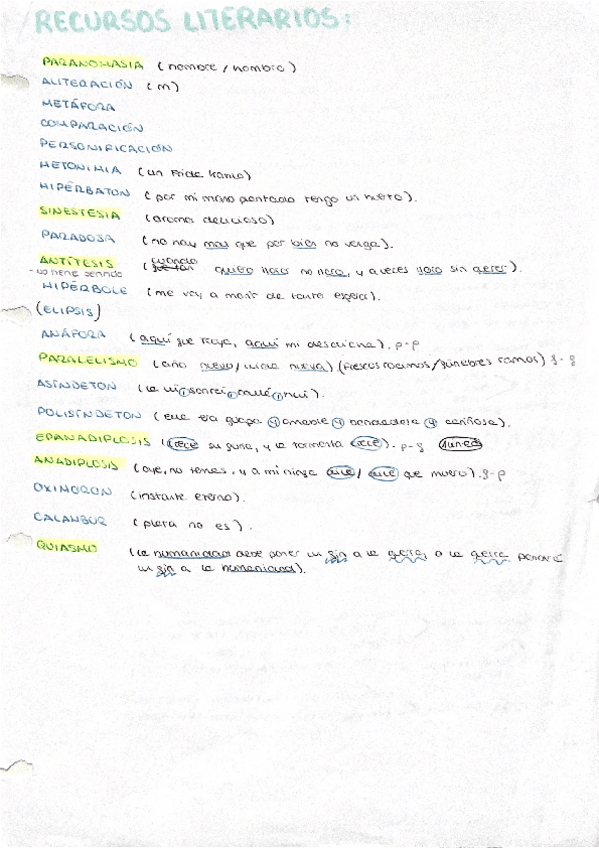 RECURSOS LITERARIOS:
PARANOMASIA (nombre / hombre)
ALITERACIÓN (m)
METÁFORA
COMPARACIÓN
PERSONIFICACIÓN
METONIMIA (un Frida Kahlo)
HIPÉRBATON (por mi mano plantado tengo un huerto).
SINESTESIA (aroma delicioso)
PARADOJA (no hay mal que por bien no venga).
ANTÍTESIS (cuando quiero llorar no lloro, y a veces lloro sin querer).
- no tiene sentido
HIPÉRBOLE (me voy a morir de tanta espera).
(ELIPSIS)
ANÁFORA (aquí fue Troya, aquí mi desdicha). p-p
PARALELISMO (año nuevo / vida nueva) (frescos racimos / fúnebres ramos) f-f
ASÍNDETON (la vi, sonreí,
POLISÍNDETON (ella era guapa y amable y y cariñosa).
EPANADIPLOSIS (crece su furia, y la tormenta crece). p-f
ANADIPLOSIS (oye, no temas, y a mi ninfa dile / dile que muero). f-p
OXIMORON (instante eterno).
CALANBUR (plata no es).
QUIASMO (la humanidad debe poner un fin a la guerra, o la guerra pondrá
un fin a la humanidad).